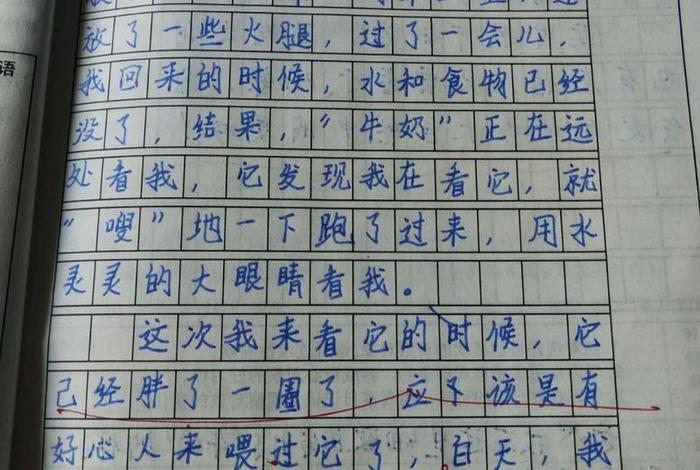 放了一些火腿，过了一会儿，
我回来的时候，水和食物已经
没了，结果，“牛奶”正在远
处看我，它发现我在看它，就
“嗖”地一下跑了过来，用水
灵灵的大眼睛看我。
这次我来看它的时候，它
已经胖了一圈了，应下该是有
好心人来喂过它了，白天，我
语